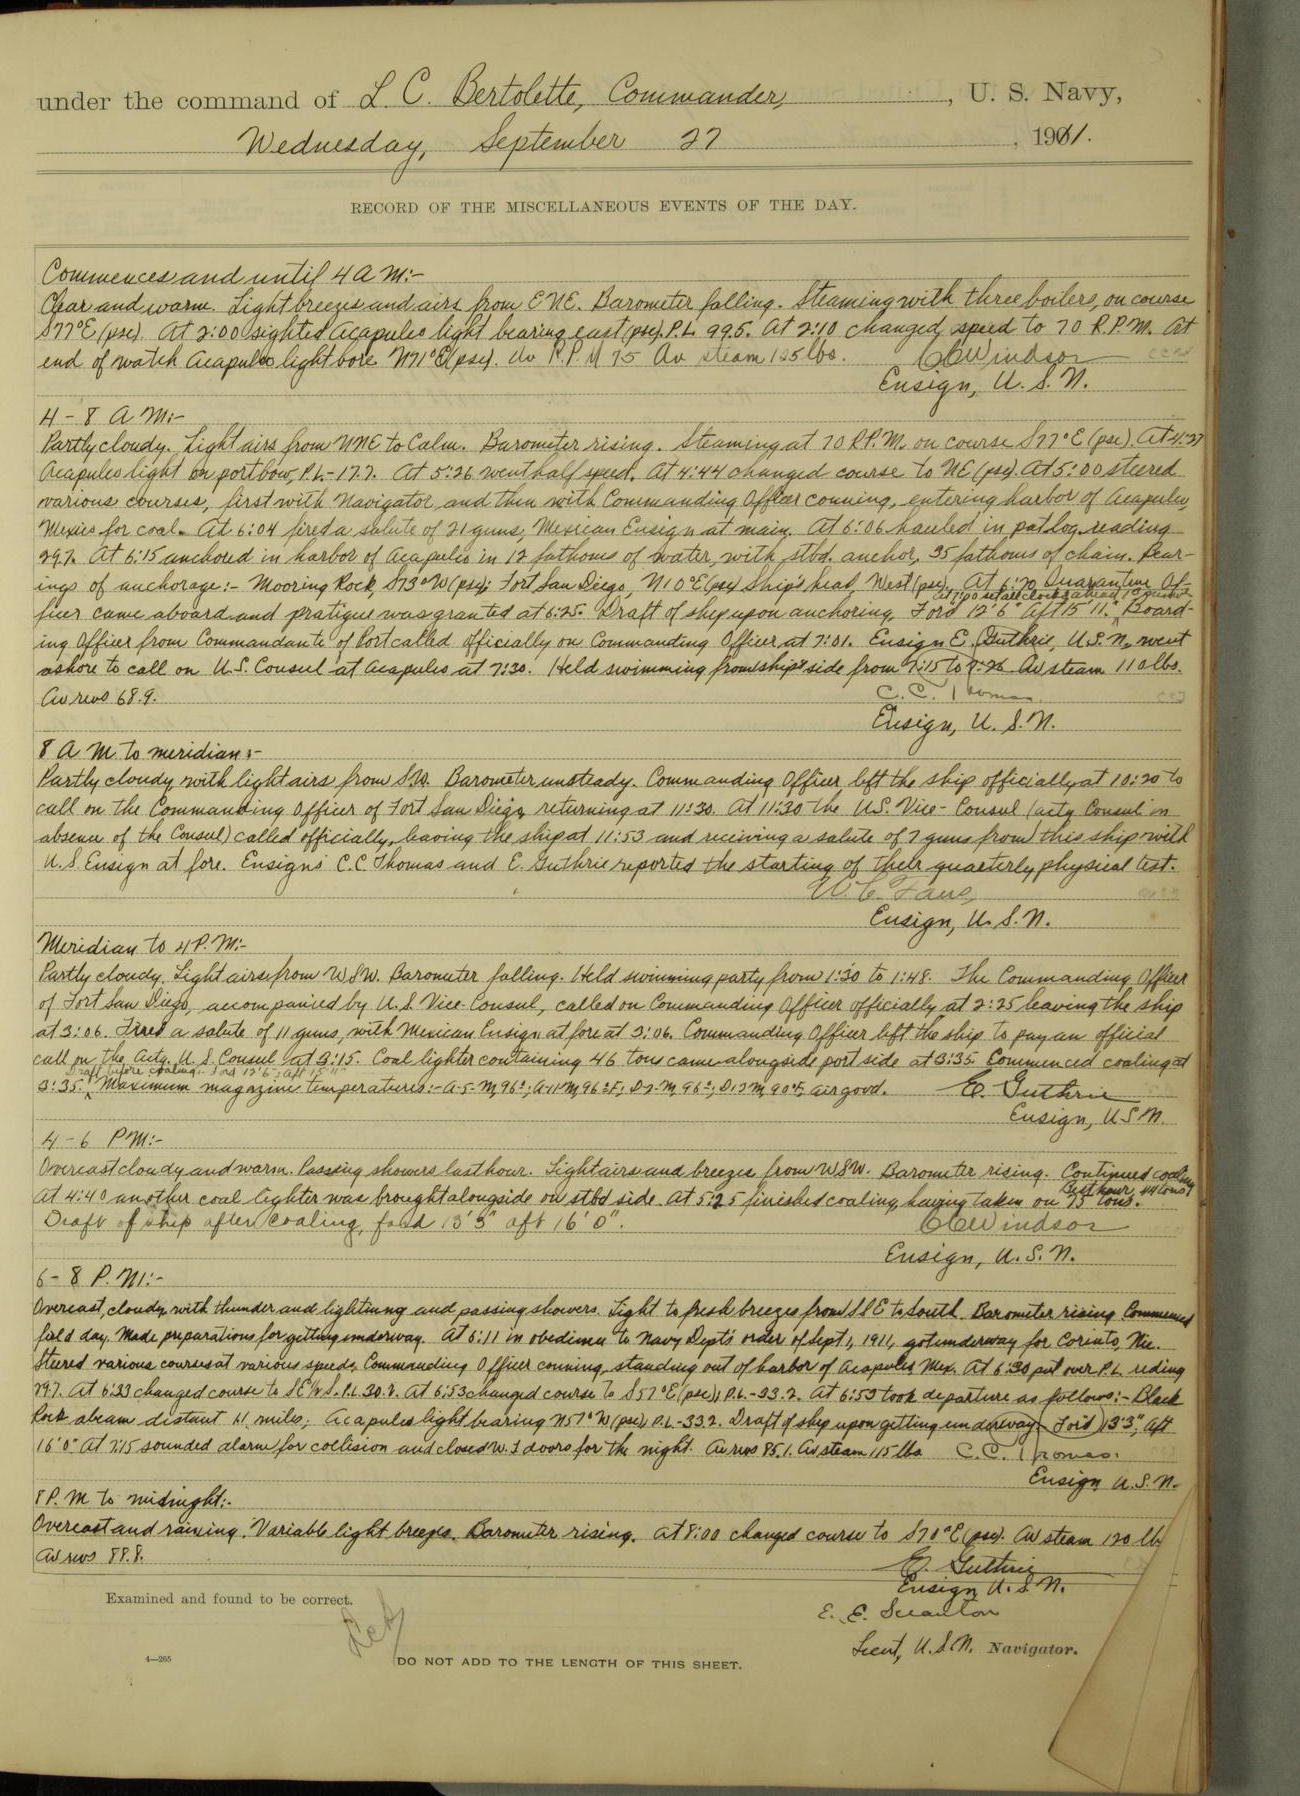 under the command of L. C. Bertolette, Commander, , U. S. Navy,
Wednesday, September 27 , 1911.
RECORD OF THE MISCELLANEOUS EVENTS OF THE DAY.
Commences and until 4 A M:-
Clear and warm. Light breezes and airs from ENE. Barometer falling. Steaming with three boilers, on course
S77°E (psc). At 2:00 sighted Acapulco light bearing east (psc). P.L. 99.5. At 2:10 changed speed to 70 R.P.M. At
end of watch Acapulco light bore N71°E (psc). Av R.P.M 75 Av steam 125 lbs. CCWindsor
Ensign, U. S. N.
4 - 8 A M:-
Partly cloudy. Light airs from NNE to Calm. Barometer rising. Steaming at 70 R.P.M. on course S77°E (psc). At 4:27
Acapulco light on port bow, P.L.-17.7. At 5:26 went half speed. At 4:44 changed course to NE (psc). At 5:00 steered
various courses, first with Navigator, and then with Commanding Officer conning, entering harbor of Acapulco,
Mexico for coal. At 6:04 fired a salute of 21 guns, Mexican Ensign at main. At 6:06 hauled in pat. log. reading
29.7. At 6:15 anchored in harbor of Acapulco in 12 fathoms of water, with stbd. anchor, 35 fathoms of chain. Bear-
ings of anchorage:- Mooring Rock, S73°W (psc); Fort San Diego, N10°E (psc) Ship's head West (psc). At 6:20 Quarantine Of-
At 7:00 set all clocks ahead
ficer came aboard and pratique was granted at 6:25. Draft of ship upon anchoring, For'd 12'6" Aft 15'11". Board-
ing Officer from Commandante of Port called officially on Commanding Officer at 7:01. Ensign E. Guthrie, U.S.N. went
ashore to call on U.S. Consul at Acapulco at 7:30. Held swimming from ship's side from 7:15 to 7:26 Av steam 110 lbs.
Av revs 68.9. C. C. Thomas
Ensign, U. S. N.
8 A M to meridian:-
Partly cloudy with light airs from S.W. Barometer unsteady. Commanding Officer left the ship officially at 10:20 to
call on the Commanding Officer of Fort San Diego, returning at 11:30. At 11:30 the U.S. Vice-Consul (actg Consul in
absence of the Consul) called officially, leaving the ship at 11:53 and receiving a salute of 7 guns from this ship with
U. S. Ensign at fore. Ensigns C.C. Thomas and E. Guthrie reported the starting of their quarterly physical test.
Ensign, U. S. N.
Meridian to 4 P. M:-
Partly cloudy. Light airs from WSW. Barometer falling. Held swimming party from 1:30 to 1:48. The Commanding Officer
of Fort San Diego, accompanied by U. S. Vice-Consul, called on Commanding Officer officially at 2:25 leaving the ship
at 3:06. Fired a salute of 11 guns, with Mexican Ensign at fore at 3:06. Commanding Officer left the ship to pay an official
call on the Actg. U. S. Consul at 3:15. Coal lighter containing 46 tons came alongside port side at 3:35 Commenced coaling at
Draft before coaling:- For'd 12'6"; aft 15'11"
3:35. Maximum magazine temperatures:- A-5-M, 96°; A-11-M, 96°F; D-2-M, 96°; D-12-M, 90°F, air good. E. Guthrie
Ensign, U S N.
4 - 6 PM:-
Overcast cloudy and warm. Passing showers last hour. Light airs and breezes from WSW. Barometer rising. Continued coaling
At 4:40 another coal lighter was brought alongside on stbd side. At 5:25 finished coaling, having taken on 75 tons.
Best hour, 44 tons
Draft of ship after coaling, for'd 13'3" aft 16'0". CCWindsor
Ensign, U. S. N.
6 - 8 P. M:-
Overcast, cloudy, with thunder and lightning and passing showers. Light to fresh breezes from SSE to South. Barometer rising. Commenced
field day. Made preparations for getting underway. At 6:11 in obedience to Navy Dept's order of Sept. 1, 1911, got underway for Corinto, Nic.
Steered various courses at various speeds, Commanding Officer conning, standing out of harbor of Acapulco Mex. At 6:30 put over P.L. reding
29.7. At 6:33 changed course to SE½S. P.L. 30.2. At 6:53 changed course to S57°E (psc), P.L.-33.2. At 6:53 took departure as follows:- Black
Rock abeam distant 1.1 miles; Acapulco light bearing N57°W (psc), P.L.-33.2. Draft of ship upon getting underway- For'd 13'3", Aft
16'0" At 7:15 sounded alarm for collision and closed W.T doors for the night. Av revs 85.1. Av steam 115 lbs C. C. Thomas.
Ensign U. S. N.
8 P. M to midnight:-
Overcast and raining. Variable light breezes. Barometer rising. At 8:00 changed course to S70°E (psc). Av steam 120 lb
Av revs 88.8.
E. Guthrie
Ensign U. S. N.
Examined and found to be correct.
E. E. Scranton
Lieut, U. S. N. Navigator.
4—265
DO NOT ADD TO THE LENGTH OF THIS SHEET.